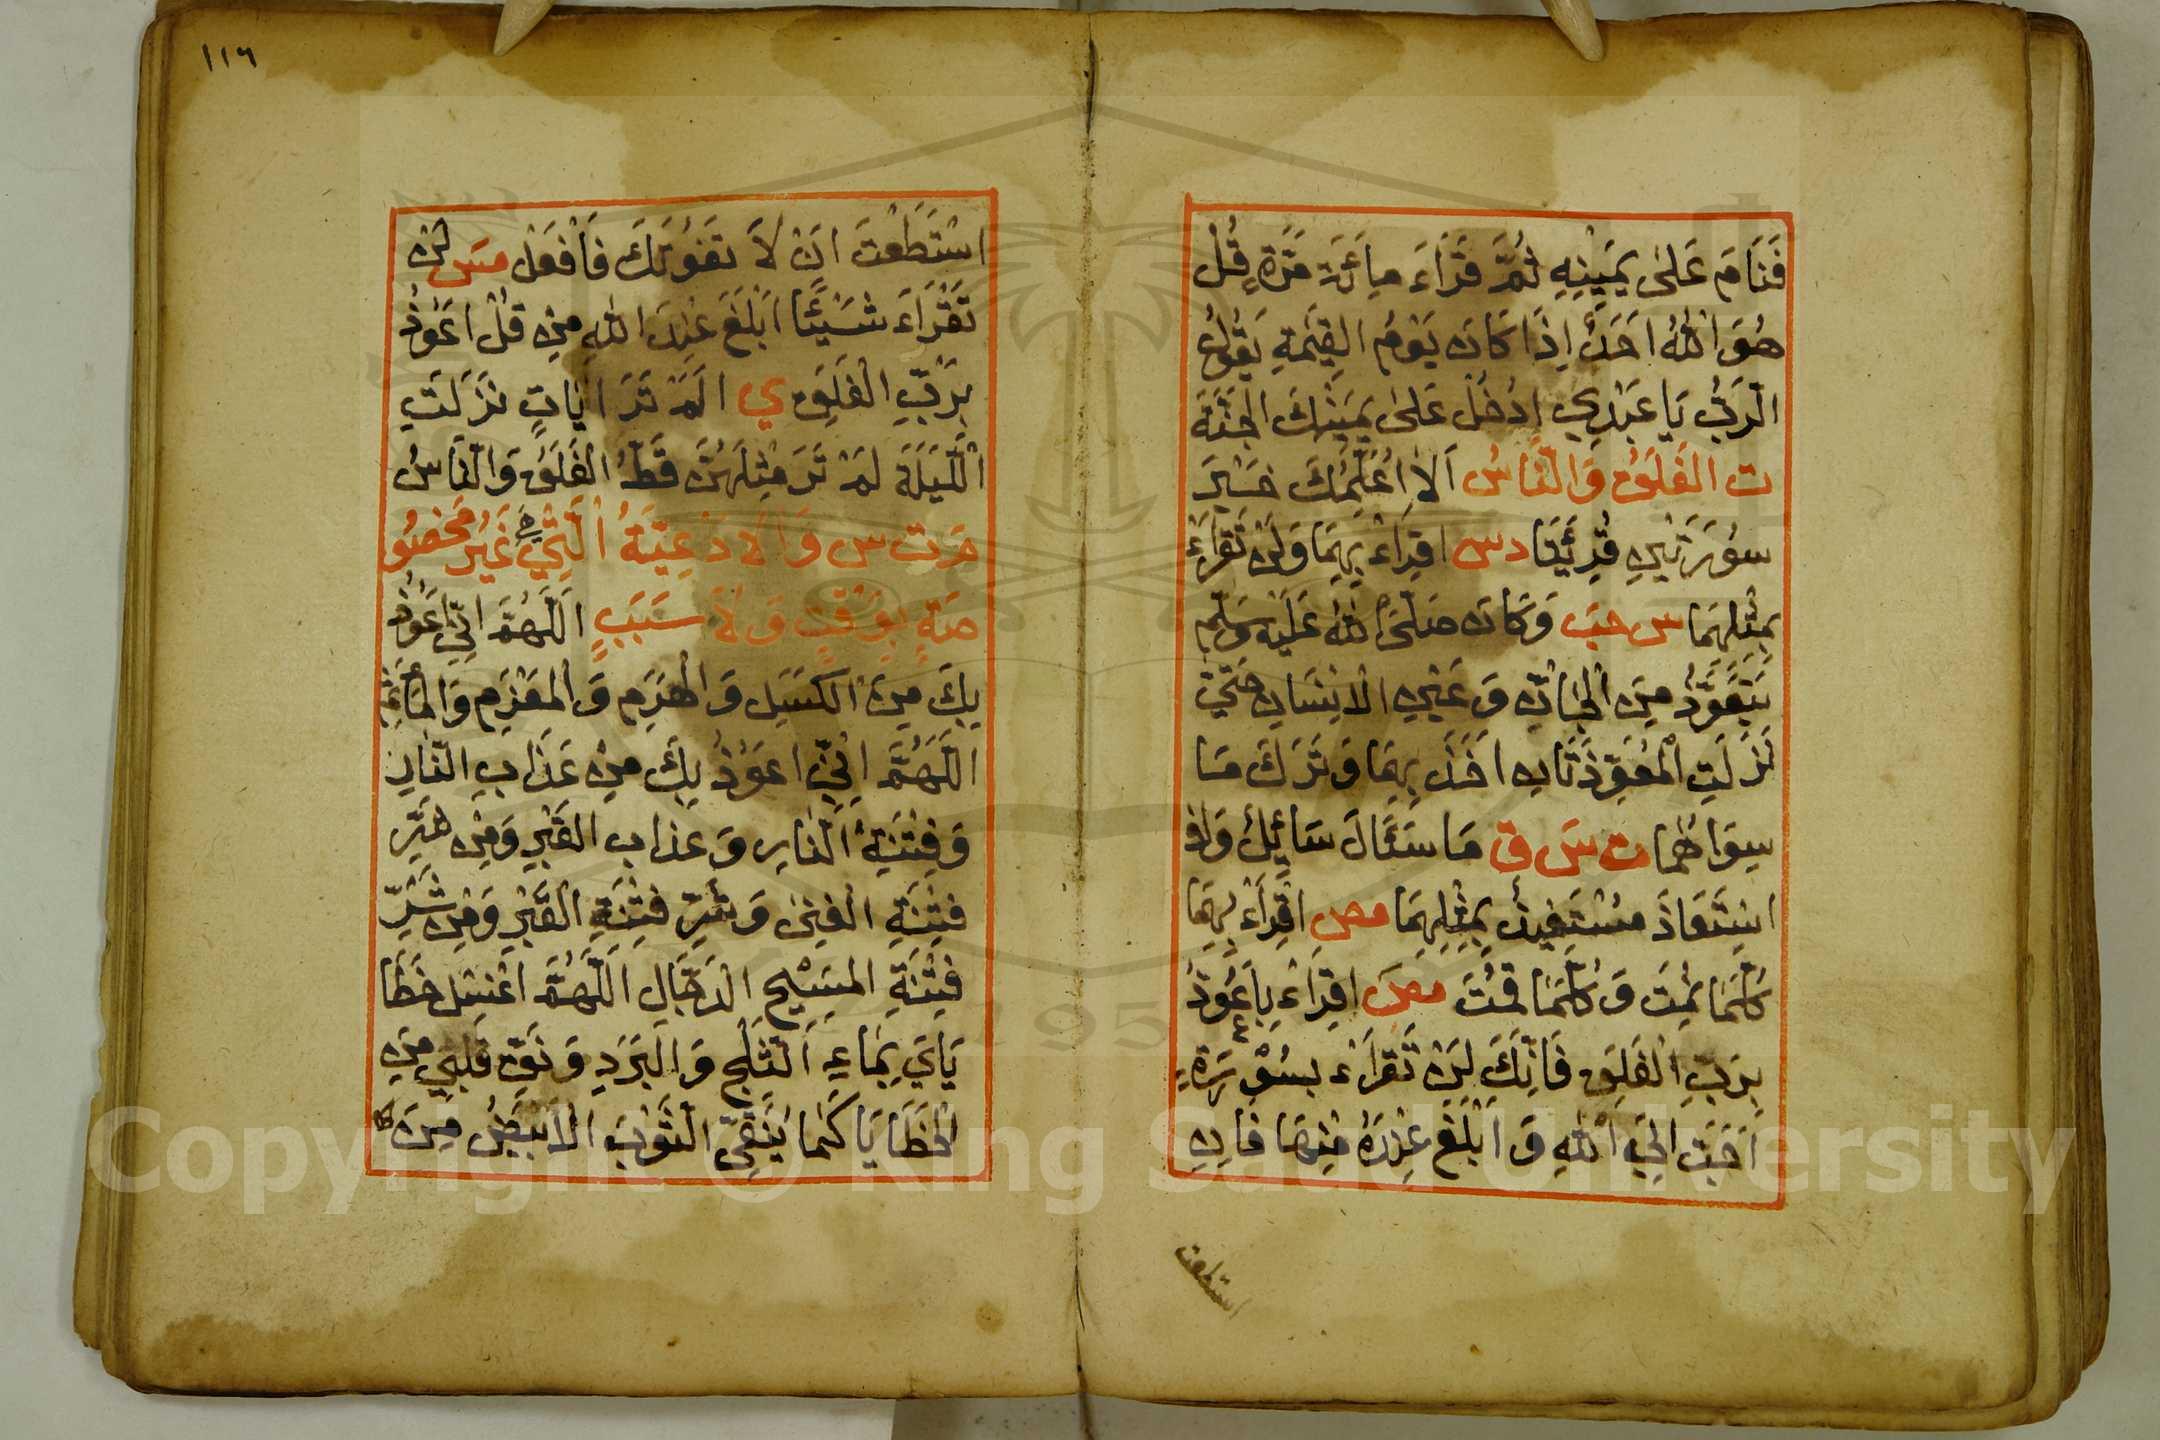 فَنَامَ عَلىٰ يَمِينِهِ ثُمَّ قَرَاءَ مِأَئَةَ مَرَّةٍ قُلْ
هُوَ اللهُ اَحَدٌ اِذَا كَانَ يَوْمُ القِيٰمَةِ يَقُولُ
الرَّبُّ يَا عَبْدِي ادْخُلْ عَلىٰ يَمِينِكَ الْجَنَّةَ
ت الفَلَقُ وَالنَّاسُ اَلاَ اُعَلِّمُكَ خَيْرَ
سُورَتَيْنِ قُرِئَتَا د س اقِرَاءْ بِهِمَا وَلَنْ تَقْرَاءَ
بِمِثْلِهِمَا س حب وَكَانَ صَلَّى اللهُ عَلَيْهِ وَسَلَّم
يَتَعَوَّذُ مِنَ الْجَانِّ وَ عَيْنِ الْاِنْسَانِ حَتّٰى
نَزَلَتِ الْمُعَوِّذَتَانِ اَخَذَ بِهِمَا وَتَرَكَ مَا
سِوَاهُمَا ت س ق مَا سَئَالَ سَائِلٌ وَلاَ
اسْتَعَاذَ مُسْتَعِيذٌ بِمِثْلِهِمَا مص اقِرَاءْ بِهِمَا
كُلَّمَا نِمْتَ وَ كُلَّمَا قُمْتَ مص اقِرَاءْ بِاَعُوذُ
بِرَبِّ الْفَلَقِ فَاِنَّكَ لَنْ تَقْرَاَءْ بِسُوْرَةٍ
اَحَبَّ اِلَى اللهِ وَ اَبْلَغَ عِنْدَهُ مِنْهَا فَاِنِ
استطعت
١١٦
اسْتَطَعْتَ اَنْ لاَ تَفُوْتَكَ فَاَفْعَلْ مس لَنْ
تَقْرَاَءَ شَيْئًا اَبْلَغَ عِنْدَ اللهِ مِنْ قُلْ اَعُوْذُ
بِرَبِّ الْفَلَقِ ي اَلَمْ تَرَ اٰيَاتٍ نَزَلَتِ
اللَّيْلَةَ لَمْ تَرَ مِثْلَهُنَّ قَطُّ الفَلَقُ وَالنَّاسُ
م ت س وَالْاَدْعِيَةُ الَّتِي غَيْرُ مَخْصُو
صَةٍ بِوَقْتٍ وَلاَ سَبَبٍ اَللَّهُمَّ اِنِّي اَعُوْذُ
بِكَ مِنَ الْكَسَلِ وَ الْهَرَمِ وَ الْمَغْرَمِ وَ الْمَأْثَمِ
اَللَّهُمَّ اِنِّي اَعُوْذُ بِكَ مِنْ عَذَابِ النَّارِ
وَ فِتْنَةِ النَّارِ وَ عذاب القَبْرِ وَمِنْ شَرِّ
فِتْنَةِ الْغِنٰى وَ شَرِّ فِتْنَةِ القَبْرِ وَمِنْ شَرِّ
فِتْنَةِ المَسِيْحِ الدَّجَّالِ اَللَّهُمَّ اغْسِل خَطَا
يَايَ بِمَاءِ الثَّلْجِ وَ الْبَرَدِ وَ نَقِّ قَلْبِي مِنَ
الْخَطَايَا كَمَا يُنَقَّى الثَّوْبُ الْاَبْيَضُ مِنَ